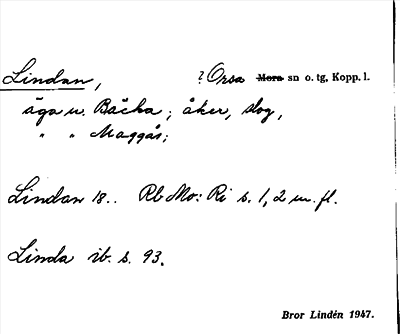 Lindan, ? Orsa Mora sn o. tg, Kopp. l.
äga v. Backa; åker, slog,
" " Maggås;
Lindan 18.. Rb Mo: Ri s. 1, 2 m. fl.
Linda ib. s. 93.
Bror Lindén 1947.